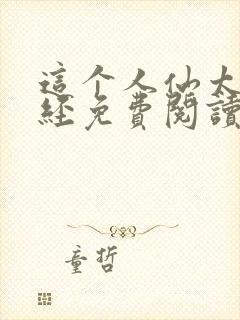 這个人仙太
經免費閱讀
童哲